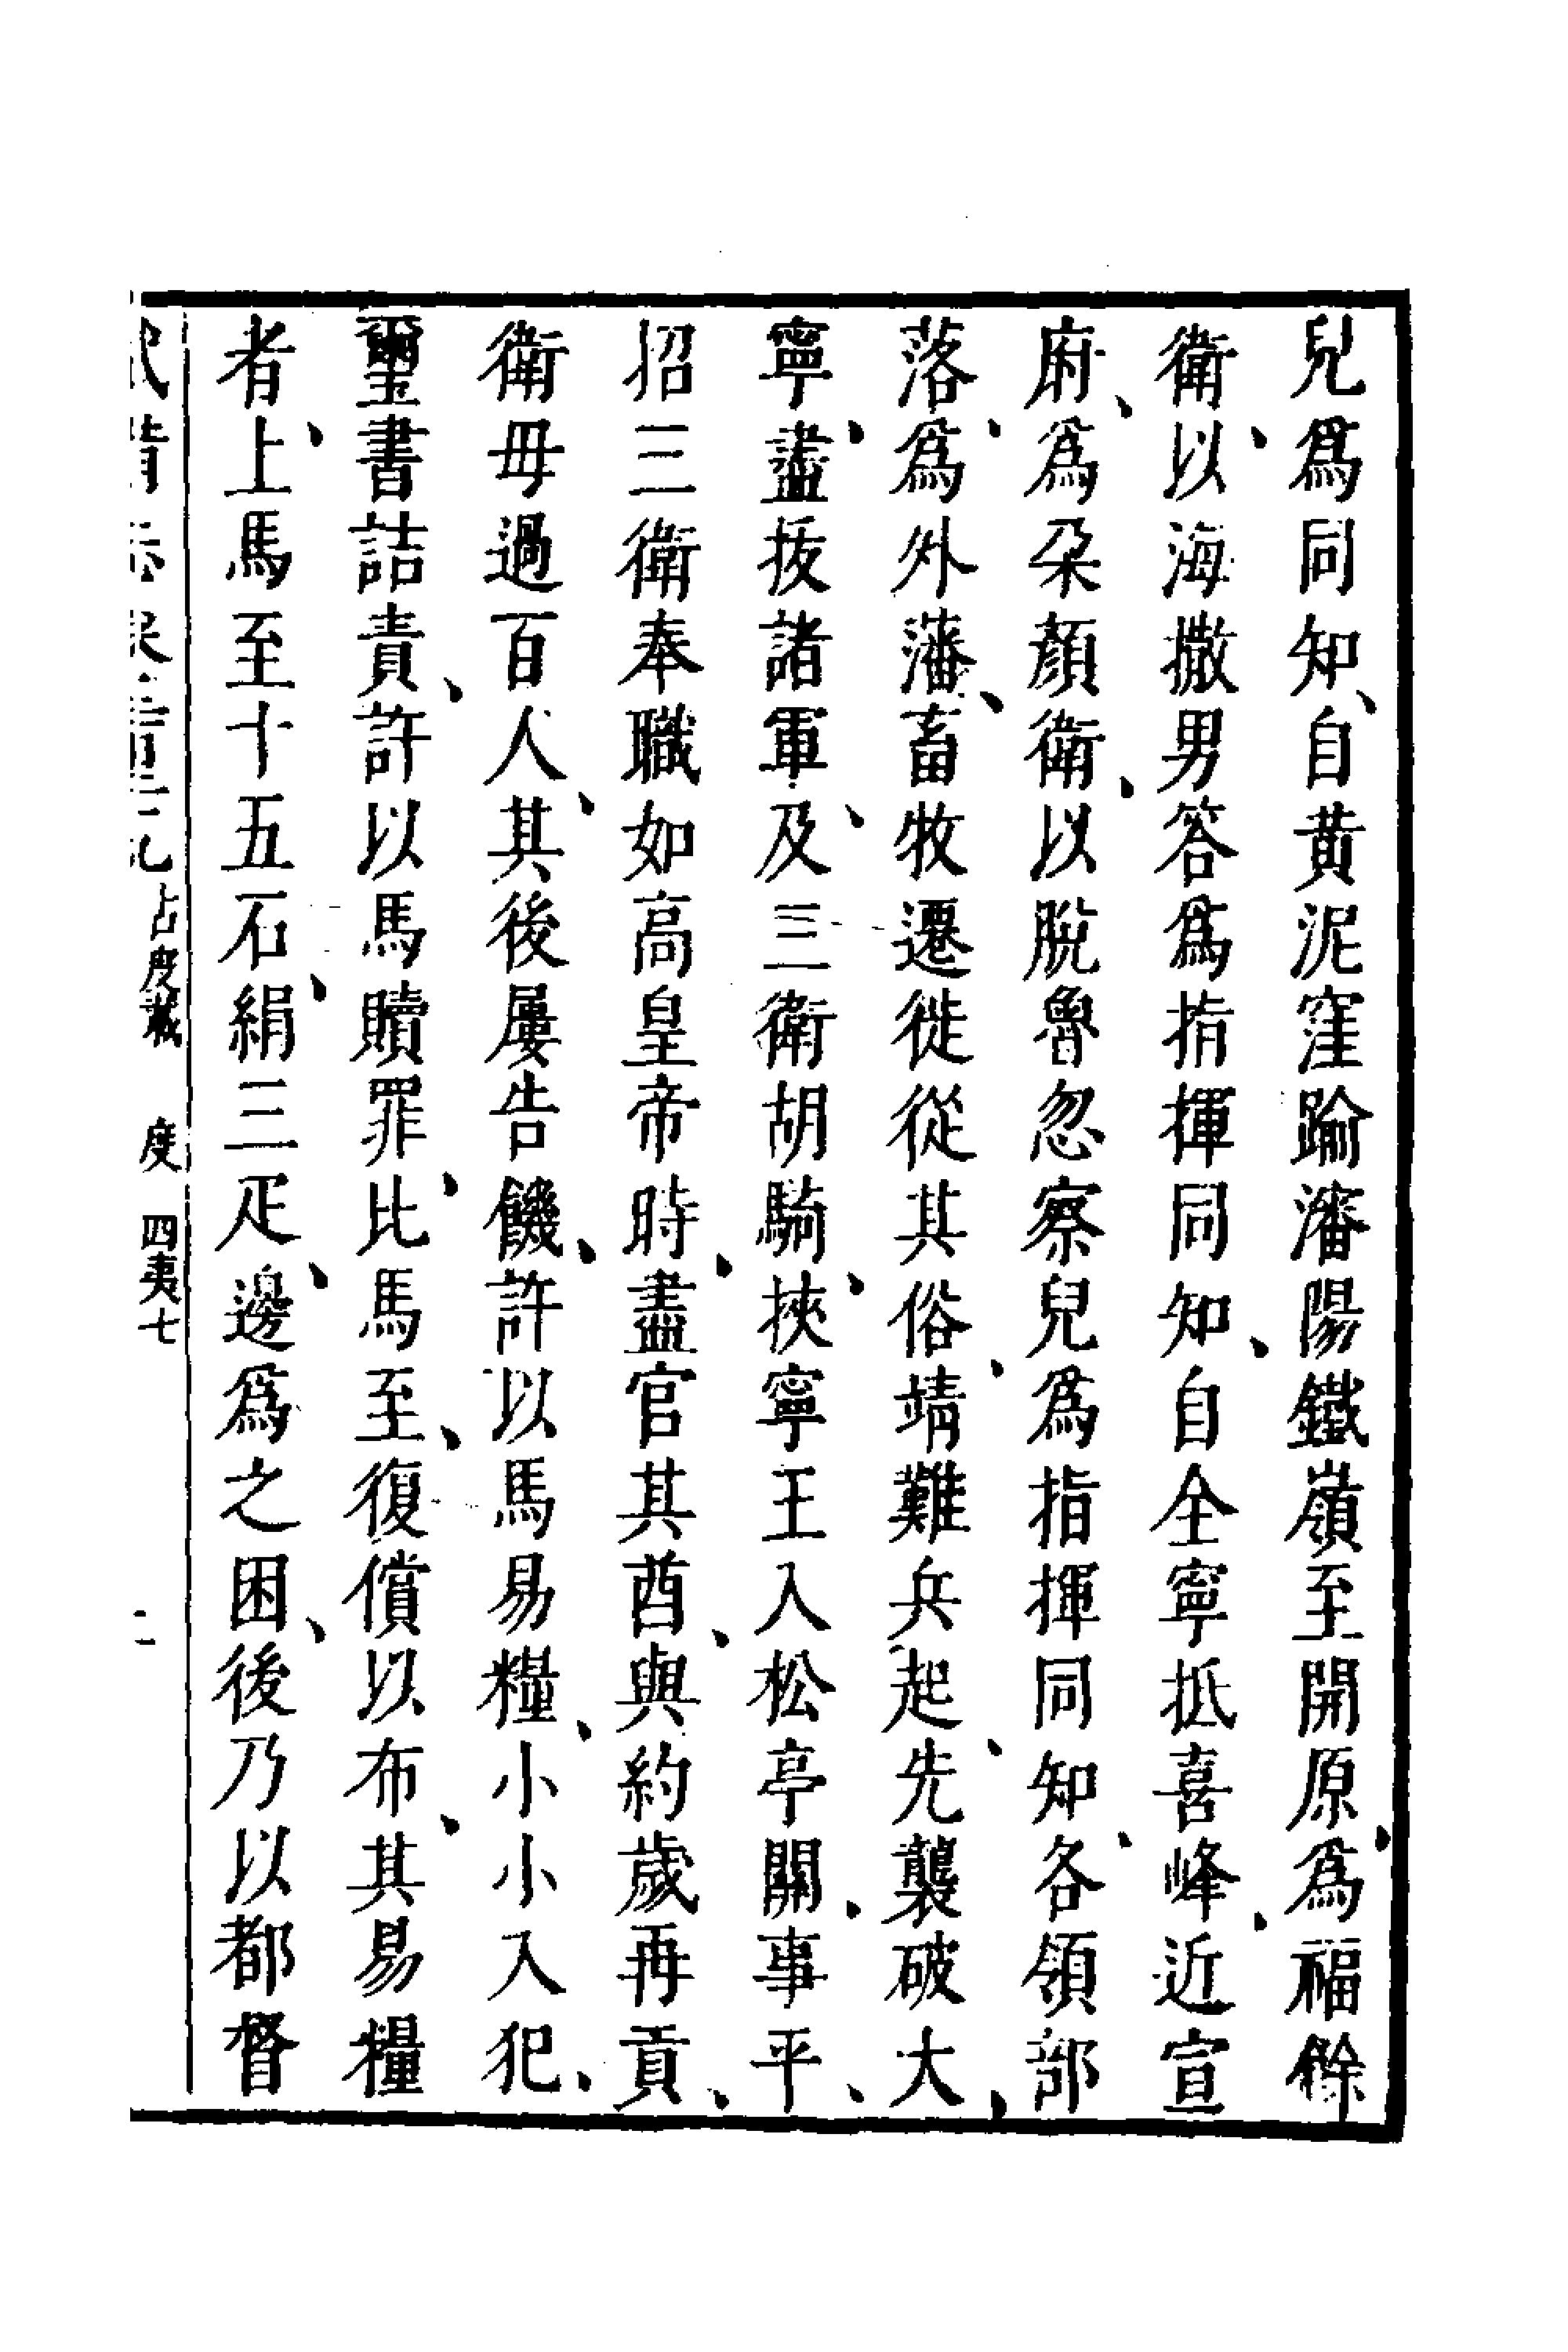 兒爲同知、自黄泥窪踰瀋陽鐵嶺至開原、爲福餘
衛、以海撒男答爲指揮同知、自全寧抵喜峰、近宣
府、爲朶顏衛、以脫魯忽察兒爲指揮同知、各領部
落、爲外藩、畜牧遷徙從其俗、靖難兵起、先襲破大
寧、盡拔諸軍、及三衛胡騎、挾寧王入松亭關、事平、
招三衛奉職如高皇帝時、盡官其酋、與約歲再貢、
衛毋過百人、其後屢告饑、許以馬易糧、小小入犯、
璽書詰責、許以馬贖罪、比馬至、復償以布、其易糧
者、上馬至十五石、絹三疋、邊爲之困、後乃以都督
占度載 度 四夷七